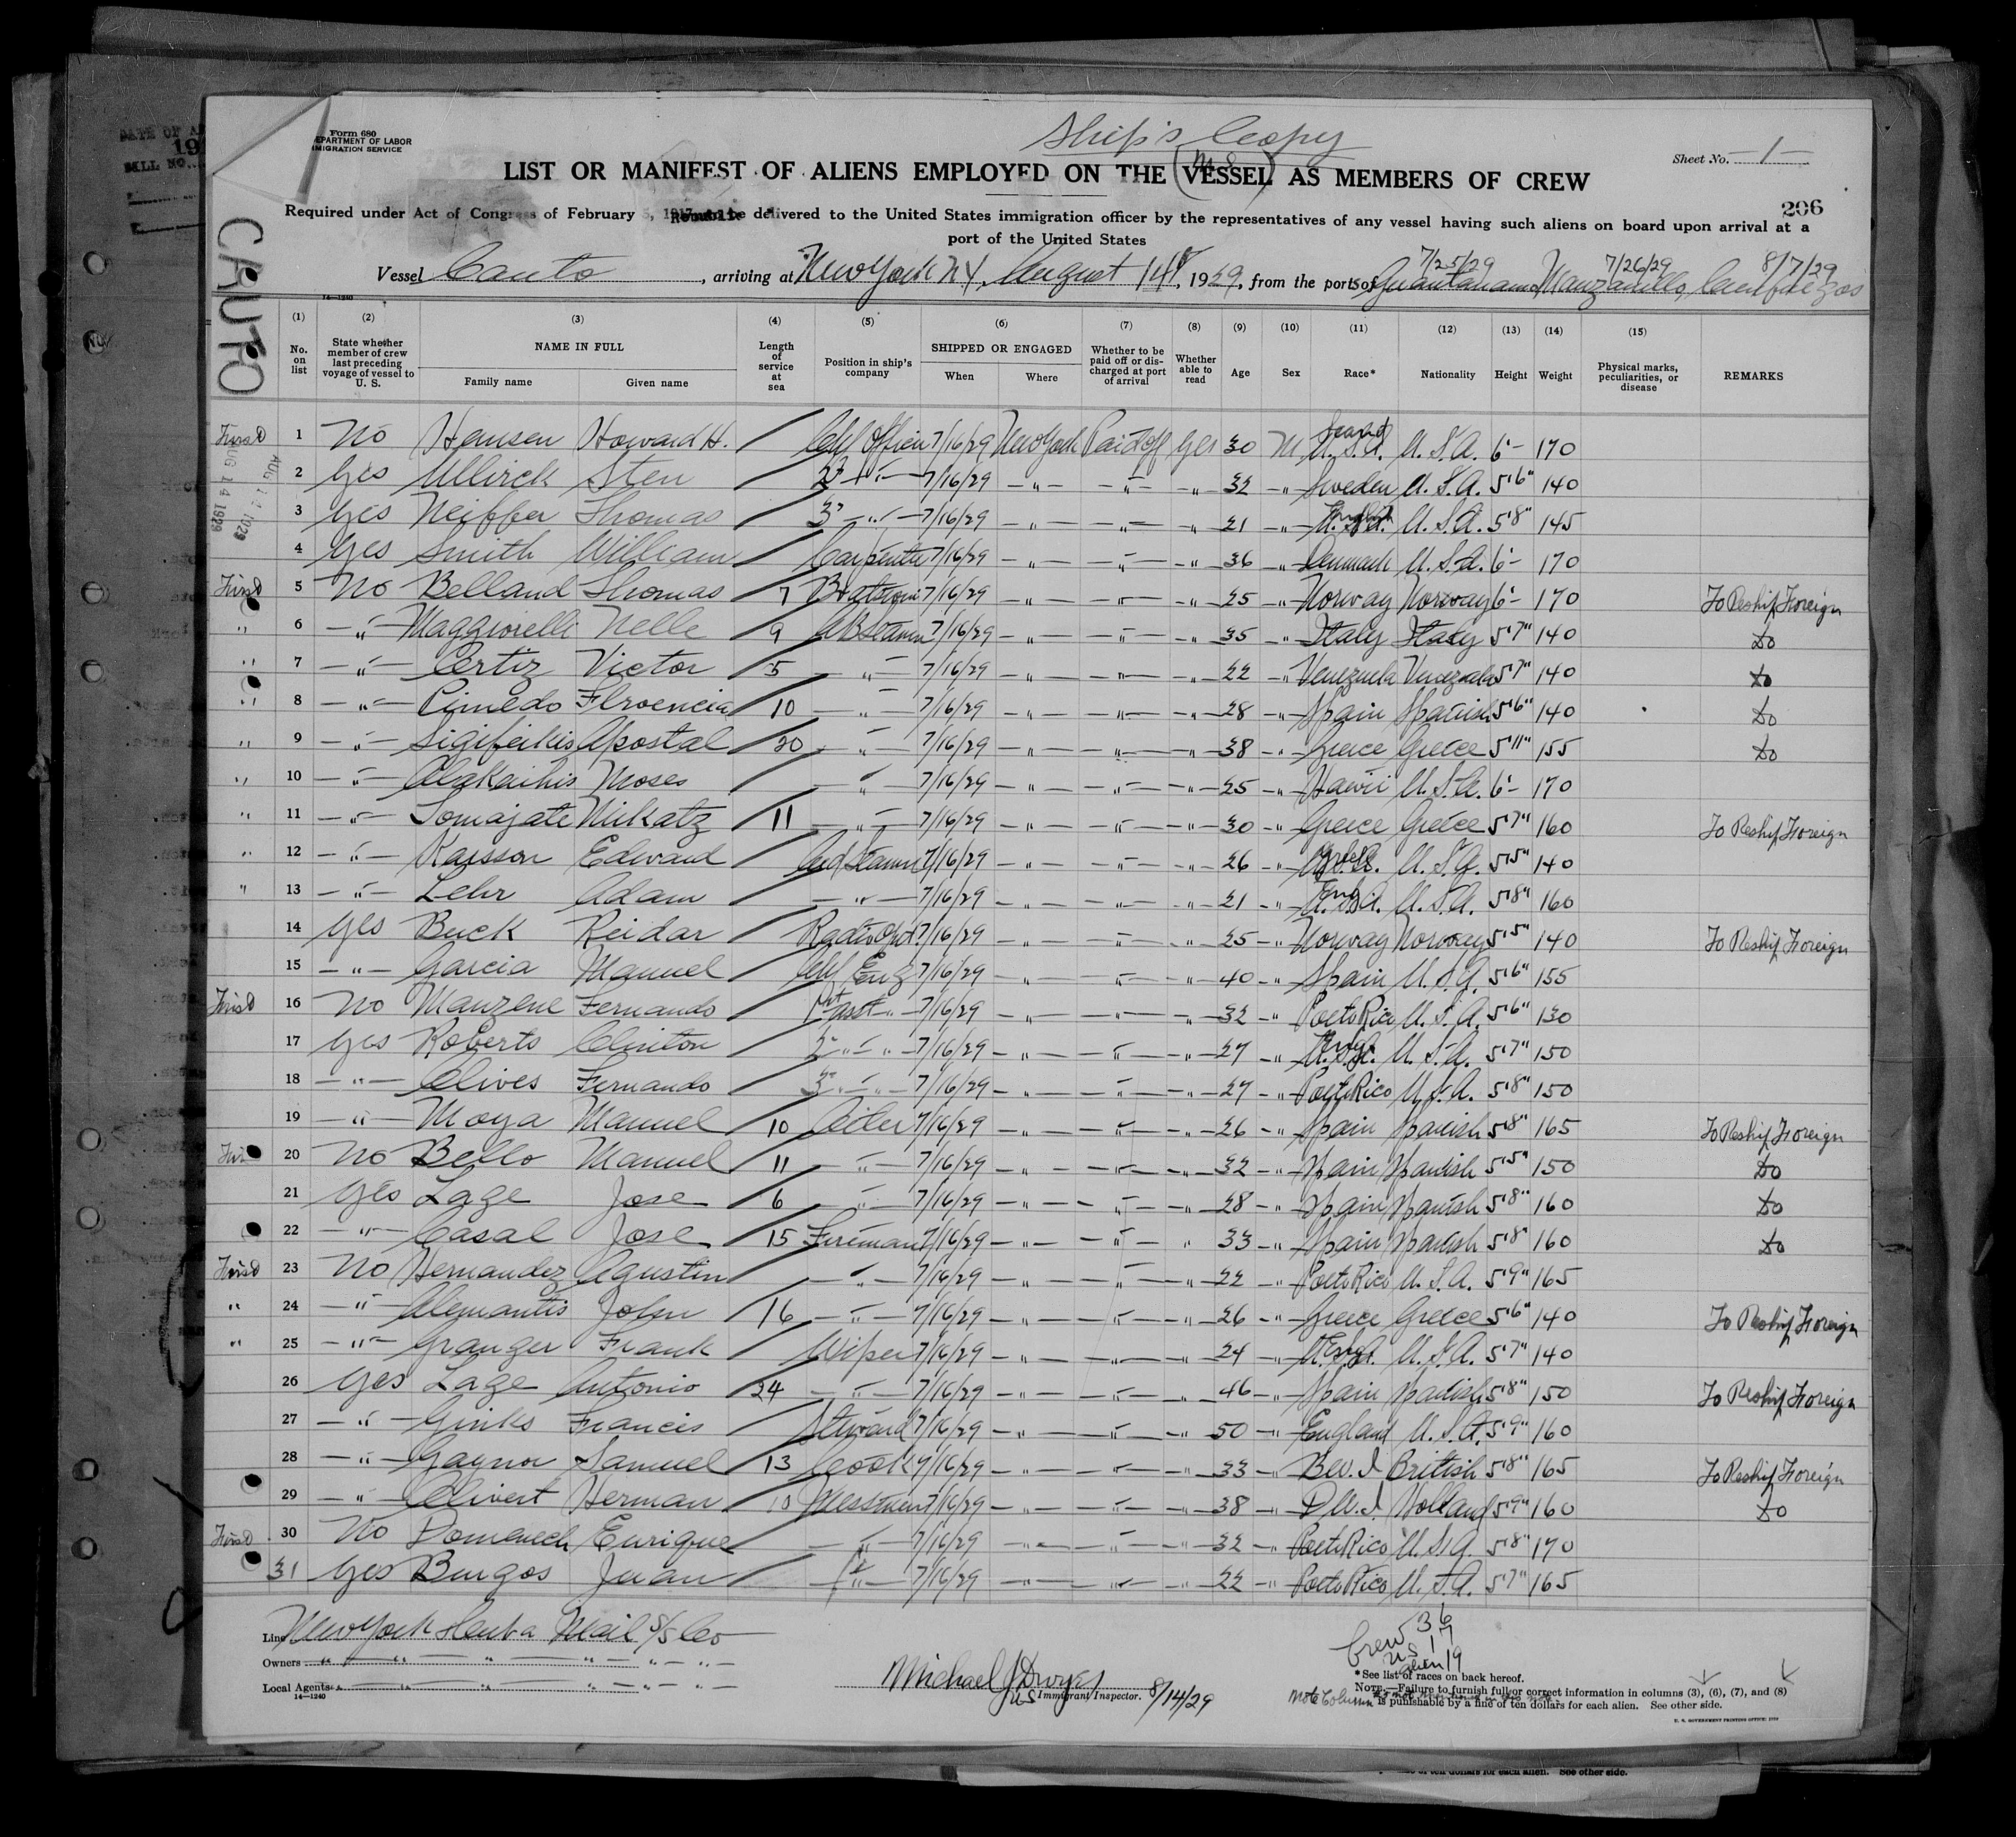 Ship's Copy
Form 680
DEPARTMENT OF LABOR
IMMIGRATION SERVICE
Sheet No. -1-
LIST OR MANIFEST OF ALIENS EMPLOYED ON THE (VESSEL) AS MEMBERS OF CREW
206
Required under Act of Congress of February 5, 1917, to be delivered to the United States immigration officer by the representatives of any vessel having such aliens on board upon arrival at a
port of the United States
CAUTO
7/25/29 7/26/29 8/7/29
Vessel Cauto, arriving at New York N.Y., August 14th, 1929, from the ports of Guantanamo, Manzanillo, Cienfuegos
14-1240
(1) (2) (3) (4) (5) (6) (7) (8) (9) (10) (11) (12) (13) (14) (15)
No. on list
State whether member of crew last preceding voyage of vessel to U. S.
NAME IN FULL
Family name Given name
Length of service at sea
Position in ship's company
SHIPPED OR ENGAGED
When Where
Whether to be paid off or discharged at port of arrival
Whether able to read
Age Sex Race* Nationality Height Weight
Physical marks, peculiarities, or disease
REMARKS
1 No Hansen Howard H. Chf Officer 7/16/29 New York Paid off Yes 30 M Scand U.S.A. U.S.A. 6'- 170
2 Yes Ullrick Sten 2d -"- 7/16/29 -"- -"- -"- 32 -"- Sweden U.S.A. 5'6" 140
3 Yes Neiffer Thomas 3d -"- 7/16/29 -"- -"- -"- 21 -"- U.S.A. U.S.A. 5'8" 145
4 Yes Smith William Carpenter 7/16/29 -"- -"- -"- 36 -"- Denmark U.S.A. 6'- 170
5 No Belland Thomas 7 Boatswain 7/16/29 -"- -"- -"- 25 -"- Norway Norway 6'- 170 To Reship Foreign
6 -"- Maggiorelli Nelle 9 AB Seaman 7/16/29 -"- -"- -"- 35 -"- Italy Italy 5'7" 140 Do
7 -"- Certiz Victor 5 -"- 7/16/29 -"- -"- -"- 22 -"- Venezuela Venezuela 5'7" 140 Do
8 -"- Pimedo Flroencia 10 -"- 7/16/29 -"- -"- -"- 28 -"- Spain Spanish 5'6" 140 Do
9 -"- Sigifeikis Apostal 20 -"- 7/16/29 -"- -"- -"- 38 -"- Greece Greece 5'11" 155 Do
10 -"- Alakaihis Moses -"- 7/16/29 -"- -"- -"- 25 -"- Hawii U.S.A. 6'- 170
11 -"- Tomajate Nikatz 11 -"- 7/16/29 -"- -"- -"- 30 -"- Greece Greece 5'7" 160 To Reship Foreign
12 -"- Karsson Edward Ord Seaman 7/16/29 -"- -"- -"- 26 -"- U.S.A. U.S.A. 5'5" 140
13 -"- Lehr Adam -"- 7/16/29 -"- -"- -"- 21 -"- Eng U.S.A. U.S.A. 5'8" 160
14 Yes Buck Reidar Radio Opr. 7/16/29 -"- -"- -"- 25 -"- Norway Norway 5'5" 140 To Reship Foreign
15 -"- Garcia Manuel Chf Eng 7/16/29 -"- -"- -"- 40 -"- Spain U.S.A. 5'6" 155
16 No Manzene Fernando 1st asst -"- 7/16/29 -"- -"- -"- 32 -"- Poeto Rico U.S.A. 5'6" 130
17 Yes Roberts Clinton 2d -"- -"- 7/16/29 -"- -"- -"- 27 -"- Eng U.S.A. U.S.A. 5'7" 150
18 -"- Olives Fernando 3d -"- -"- 7/16/29 -"- -"- -"- 27 -"- Poeto Rico U.S.A. 5'8" 150
19 -"- Moya Manuel 10 Oiler 7/16/29 -"- -"- -"- 26 -"- Spain Spanish 5'8" 165 To Reship Foreign
20 No Bello Manuel 11 -"- 7/16/29 -"- -"- -"- 32 -"- Spain Spanish 5'5" 150 Do
21 Yes Lage Jose 6 -"- 7/16/29 -"- -"- -"- 28 -"- Spain Spanish 5'8" 160 Do
22 -"- Casal Jose 15 Fireman 7/16/29 -"- -"- " 33 -"- Spain Spanish 5'8" 160 Do
23 No Hernandez Agustin -"- 7/16/29 -"- -"- -"- 22 -"- Poeto Rico U.S.A. 5'9" 165
24 -"- Clemantis John 16 -"- 7/16/29 -"- -"- -"- 26 -"- Greece Greece 5'6" 140 To Reship Foreign
25 -"- Granger Frank Wiper 7/16/29 -"- -"- -"- 24 -"- Eng U.S.A. U.S.A. 5'7" 140
26 Yes Lage Antonio 24 -"- 7/16/29 -"- -"- " 46 -"- Spain Spanish 5'8" 150 To Reship Foreign
27 -"- Ginks Francis Steward 7/16/29 -"- -"- -"- 50 -"- England U.S.A. 5'9" 160
28 -"- Gaynor Samuel 13 Cook 7/16/29 -"- -"- -"- 33 -"- B.W.I British 5'8" 165 To Reship Foreign
29 -"- Olivert Herman 10 Messman 7/16/29 -"- -"- -"- 38 -"- D.W.I. Holland 5'9" 160 Do
30 No Domenech Enrique -"- 7/16/29 -"- -"- -"- 32 -"- Poeto Rico U.S.A. 5'8" 170
31 Yes Burgos Juan -"- 7/16/29 -"- -"- -"- 22 -"- Poeto Rico U.S.A. 5'7" 165
AUG 14 1929
Line New York & Cuba Mail S/S Co
Owners
Local Agents
14-1240
Michael J Dwyer
US Immigrant Inspector. 8/14/29
Crew 36
US 17
alien 19
*See list of races on back hereof.
NOTE.—Failure to furnish full or correct information in columns (3), (6), (7), and (8)
is punishable by a fine of ten dollars for each alien. See other side.
Note Column
U. S. GOVERNMENT PRINTING OFFICE
of ten dollars for each alien. See other side.